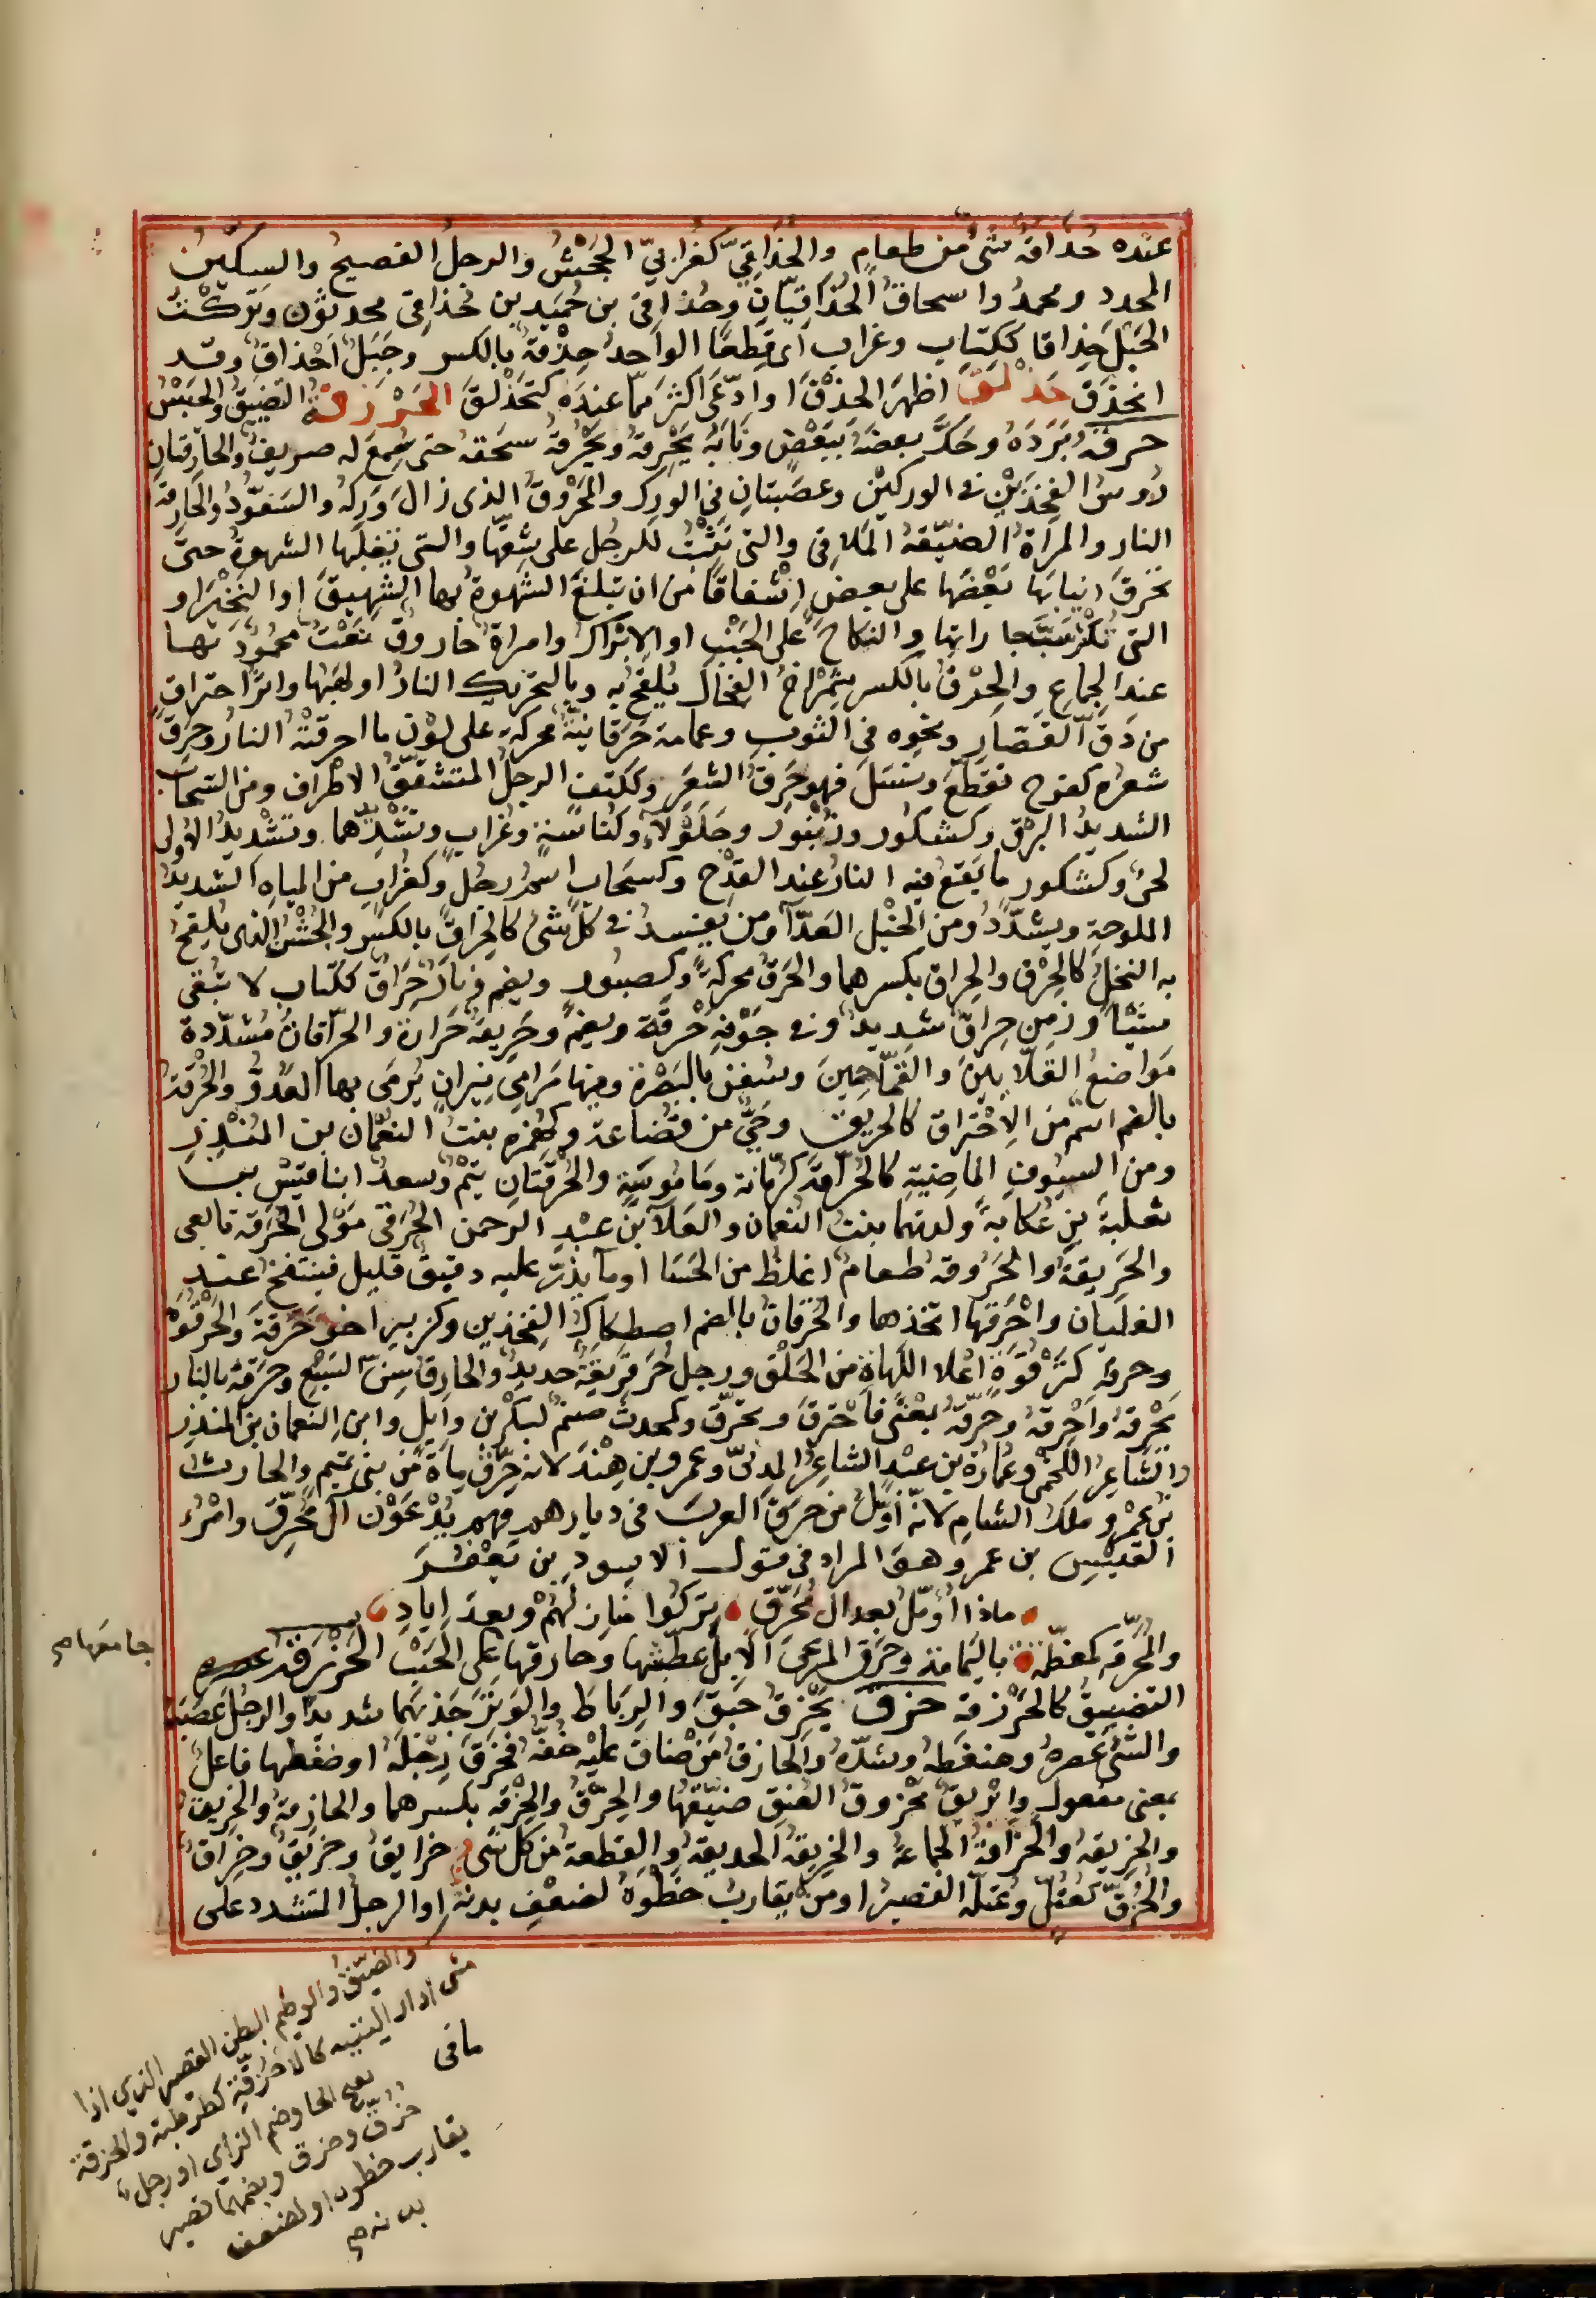 عنده حذاقة شئ من طعام والحذاقي كغرابي الجحش والرجل الفصيح والسكين
المحدد ومحمد واسحاق الحذاقيان وحذاقى بن حميد بن حذاقى محدثون وتركت
الحبل حذاقا ككتاب وغراب اى قطعا الواحد حذقة بالكسر وحبل احذاق وقد
انحذق حذلق اظهر الحذق او ادعى اكثر مما عنده كتحذلق الحرزقة التضييق والحبس
حرقه برده وحك بعضه ببعض ونابه يحرقه ويحرقه سحقه حتى سمع له صريف والحارقتان
رووس الفخذين فى الوركين وعصبتان فى الورك والمحروق الذى زال وركه والسفود والحارقة
النار والمراة الضيقة الملاقى والتى تثبت للرجل على شقها والتى تغلبها الشهوة حتى
تحرق انيابها بعضها على بعض اشفاقا من ان تبلغ الشهوة بها الشهيق او النخير او
التى تكثر سب جاراتها والنكاح على الجنب او الابراك وامراة حاروق نعت محمود لها
عند الجماع والحرق بالكسر شمراخ الفحال يلقح به وبالتحريك النار او لهبها واثر احتراق
من دق القصار ونحوه فى الثوب وعمامة حرقانية محركة على لون ما احرقته النار وحرق
شعره كفرح تقطع ونسل فهو حرق الشعر وككتف الرجل المتشقق الاطراف ومن السحاب
الشديد البرق وكشكور وتنور وجلولاء وكناسة وغراب وتشديدهما وتشديد الاولى
لحن وكشكور ما يقع فيه النار عند القدح وكسحاب اسم رجل وكغراب من المياه الشديد
الملوحة ويشدد ومن الخيل العدا ومن يفسد فى كل شئ كالحراق بالكسر والجش الذى يلقح
به النخل كالحرق والحراق بكسرهما والحرق محركة وكصبور ويضم ونار حراق ككتاب لا تبقى
شيئا ورمى حراق شديد وفى جوفه حرقة ويضم وحريقة حرارة والحراقات مشددة
مواضع القلايين والفحامين وسفن بالبصرة وفيها مرامى نيران يرمى بها العدو والحرقة
بالضم اسم من الاحتراق كالحريق وحى من قضاعة وكهمزة بنت النعمان بن المنذر
ومن السيوف الماضية كالحراقة كرمانة وماموسة والحرقتان تيم وسعد ابنا قيس بن
ثعلبة بن عكابة ولدتهما بنت النعمان والعلا بن عبد الرحمن الحرقى مولى الحرقة تابعى
والحريقة والحروقة طعام اغلظ من الحسا او ما يذر عليه دقيق قليل فينتفخ عند
الغليان واحرقها اتخذها والحرقان بالضم اصطكاك الفخذين وكزبير اخو حرقة والحرقوة
وحرقه كترقوة اعلا اللهاة من الحلق ورجل حرقريقة حديد والحارق سن السبع وحرقه بالنار
يحرقه واحرقه وحرقه بمعنى فاحترق وتحرق وكمحدث صنم لبكر بن وايل وابن النعمان بن المنذر
والشاعر اللخمى وعمارة بن عبد الشاعر المدنى وعمرو بن هند لانه حرق ماة من بنى تميم والحارث
بن عمرو ملك الشام لانه اول من حرق العرب فى ديارهم فهم يدعون آل محرق وامرؤ
القيس بن عمرو وهو المراد فى قول الاسود بن يعفر
ماذا اؤمل بعد ال محرق تركوا منازلهم وبعد اياد
والمحرقة كمعظمة باليمامة وحرق المرعى الابل عطشها وحارقها جامعها على الجنب الحزرقة
التضييق كالحرزقة حزق يحزق حبق والرباط والوتر جذبهما شديدا والرجل عصبه
والشئ عصره وضغطه وشده والحازق من ضاق عليه خفه فحزق رجله او ضغطها فاعل
بمعنى مفعول وابريق محزوق العنق ضيقها والحزق والحزقة بكسرهما والحازقة والحزيق
والحزيقة والحزاقة الجماعة والحزيقة الحديقة والقطعة من كل شئ حزايق وحزيق وحزاق
والحزق كعتل وعتلة القصير او من يقارب خطوه لضعف بدنه او الرجل المتشدد على
ما فى
والضيق والعظيم البطن القصير الذى اذا
مشى ادار اليتيه كالاحزقة كطرطبة والحزقة
بفتح الحا وضم الزاى او رجل
حزق وحزق وبضمهما قصير
يقارب خطوه او لضعف
بدنه